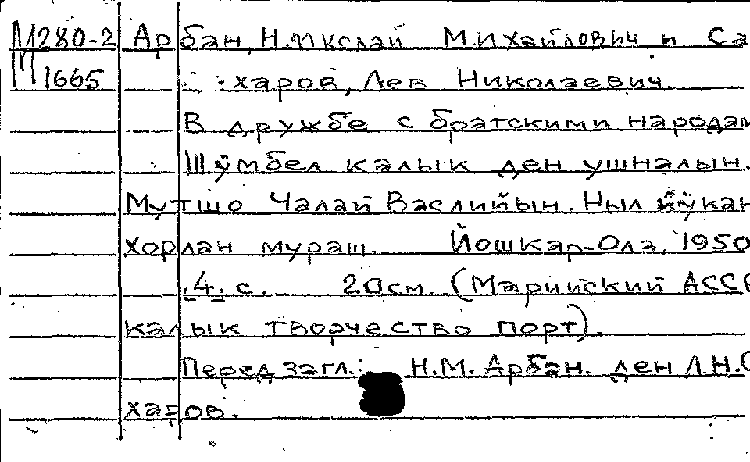 М280-2 Арбан, Николай Михайлович и Са
М1665 харов, Лев Николаевич.
В дружбе с братскими народам
Шӱмбел калык ден ушналын.
Мутшо Чалай Васлийын. Ныл йӱкан
хорлан мураш. Йошкар-Ола, 1950
4 с. 20см. (Марийский АССР
калык творчество порт).
Перед загл.: Н.М. Арбан. ден Л.Н. С
харов.